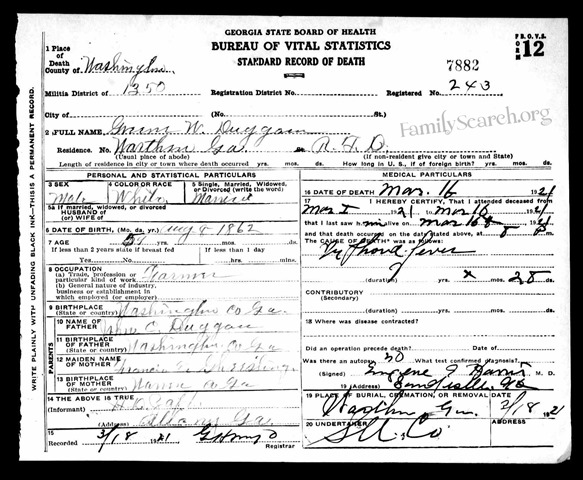 GEORGIA STATE BOARD OF HEALTH
BUREAU OF VITAL STATISTICS
STANDARD RECORD OF DEATH
FORM 12 B.O.V.S.
1 Place of Death
County of Washington
7882
Militia District of 1350 Registration District No. Registered No. 243
City of (No. St.)
2 FULL NAME W. Duggan
FamilySearch.org
Residence. No. Warthen Ga. R.F.D.
(Usual place of abode) (If non-resident give city or town and State)
Length of residence in city or town where death occurred yrs. mos. ds. How long in U. S., if of foreign birth? yrs. mos. ds.
WRITE PLAINLY WITH UNFADING BLACK INK—THIS IS A PERMANENT RECORD.
PERSONAL AND STATISTICAL PARTICULARS
3 SEX
Male
4 COLOR OR RACE
White
5 Single, Married, Widowed, or Divorced (write the word)
Married
5a If married, widowed, or divorced
HUSBAND of
(or) WIFE of
6 DATE OF BIRTH (Mo. da, yr.) Aug 8 1862
7 AGE yrs. mos. ds.
If less than 2 years state if breast fed If less than 1 day
Yes No hrs. min.
8 OCCUPATION
(a) Trade, profession or particular kind of work Farmer
(b) General nature of industry, business or establishment in which employed (or employer)
9 BIRTHPLACE
(State or country) Washington Co Ga.
PARENTS
10 NAME OF FATHER C. Duggan
11 BIRTHPLACE OF FATHER
(State or country) Washington Co Ga
12 MAIDEN NAME OF MOTHER
13 BIRTHPLACE OF MOTHER
(State or country) Co Ga
14 THE ABOVE IS TRUE
(Informant)
(Address) Ga.
15
Recorded 3/18 1921 Registrar
MEDICAL PARTICULARS
16 DATE OF DEATH Mar. 16 1921
17 I HEREBY CERTIFY, That I attended deceased from
Mar 1 21 Mar 16 1921
that I last saw h im alive on Mar 16 1921
and that death occurred on the date stated above, at 8 P
The CAUSE OF DEATH* was as follows:
Typhoid fever
(duration) yrs. x mos. 25 ds.
CONTRIBUTORY
(Secondary)
(duration) yrs. mos. ds.
18 Where was disease contracted?
Did an operation precede death? Date of
Was there an autopsy? no What test confirmed diagnosis?
(Signed) Eugene F Harris M. D.
19 (Address) Sandersville, Ga
19 PLACE OF BURIAL, CREMATION, OR REMOVAL DATE
Warthen Ga. 3/18 1921
20 UNDERTAKER ADDRESS